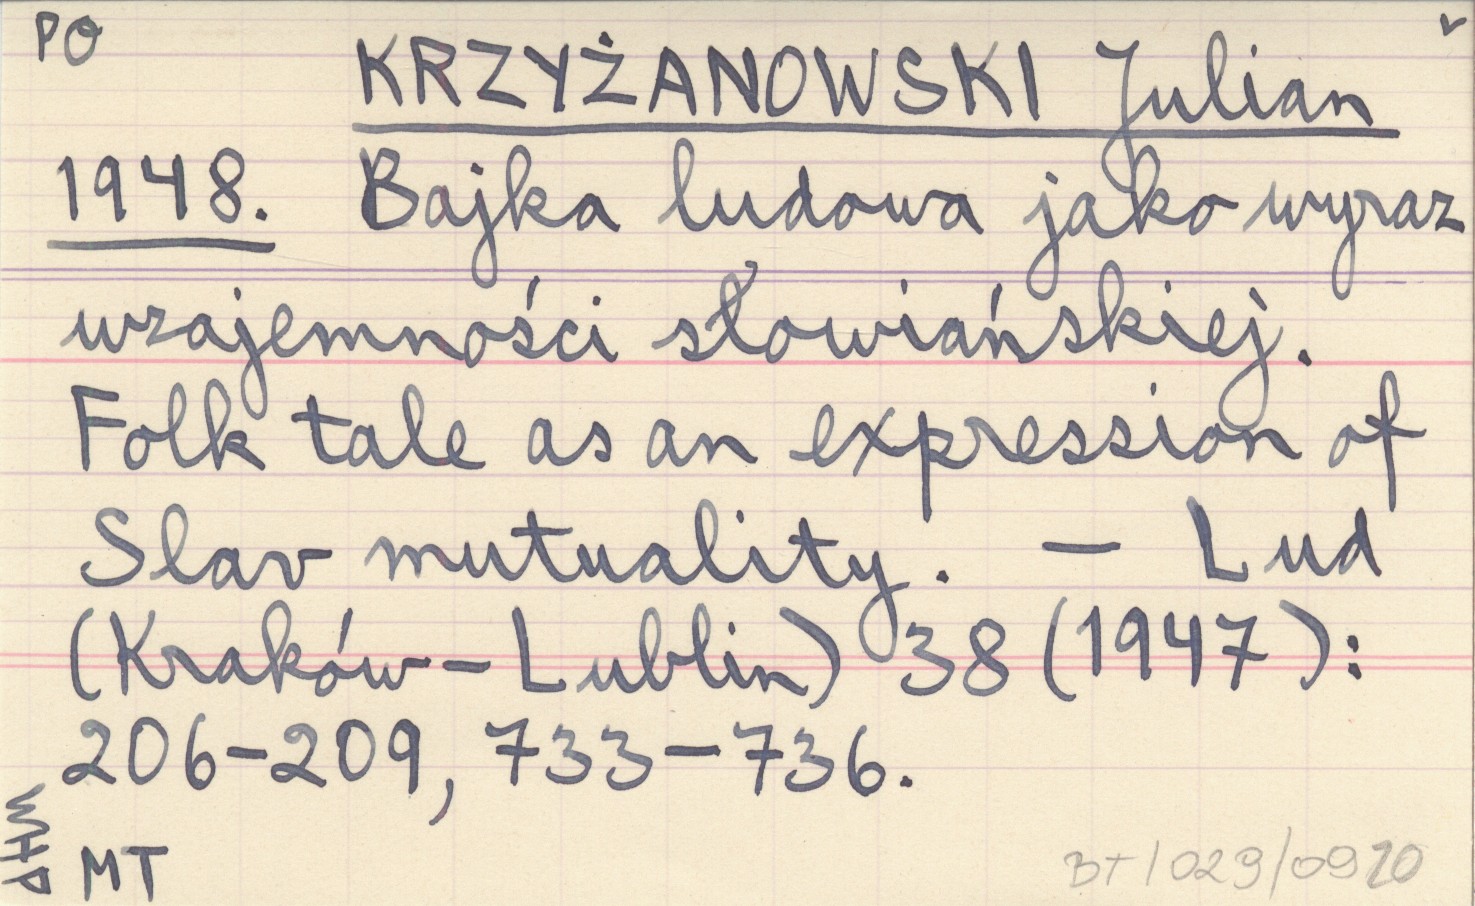 PO
KRZYŻANOWSKI Julian
1948. Bajka ludowa jako wyraz
wzajemności słowiańskiej.
Folk tale as an expression of
Slav mutuality. — Lud
(Kraków-Lublin) 38 (1947):
206-209, 733-736.
MT
BT/029/0920